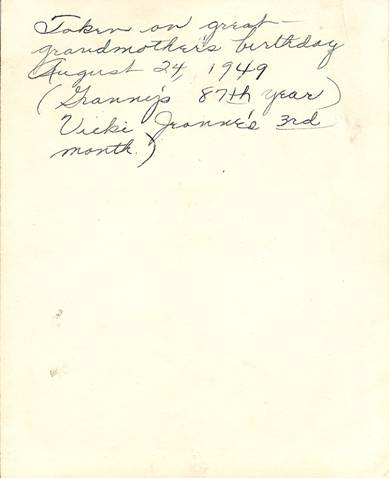 Taken on great-
grandmother's birthday
August 24, 1949
(Granny's 87th year)
Vicki Jeanne's 3rd
month.)